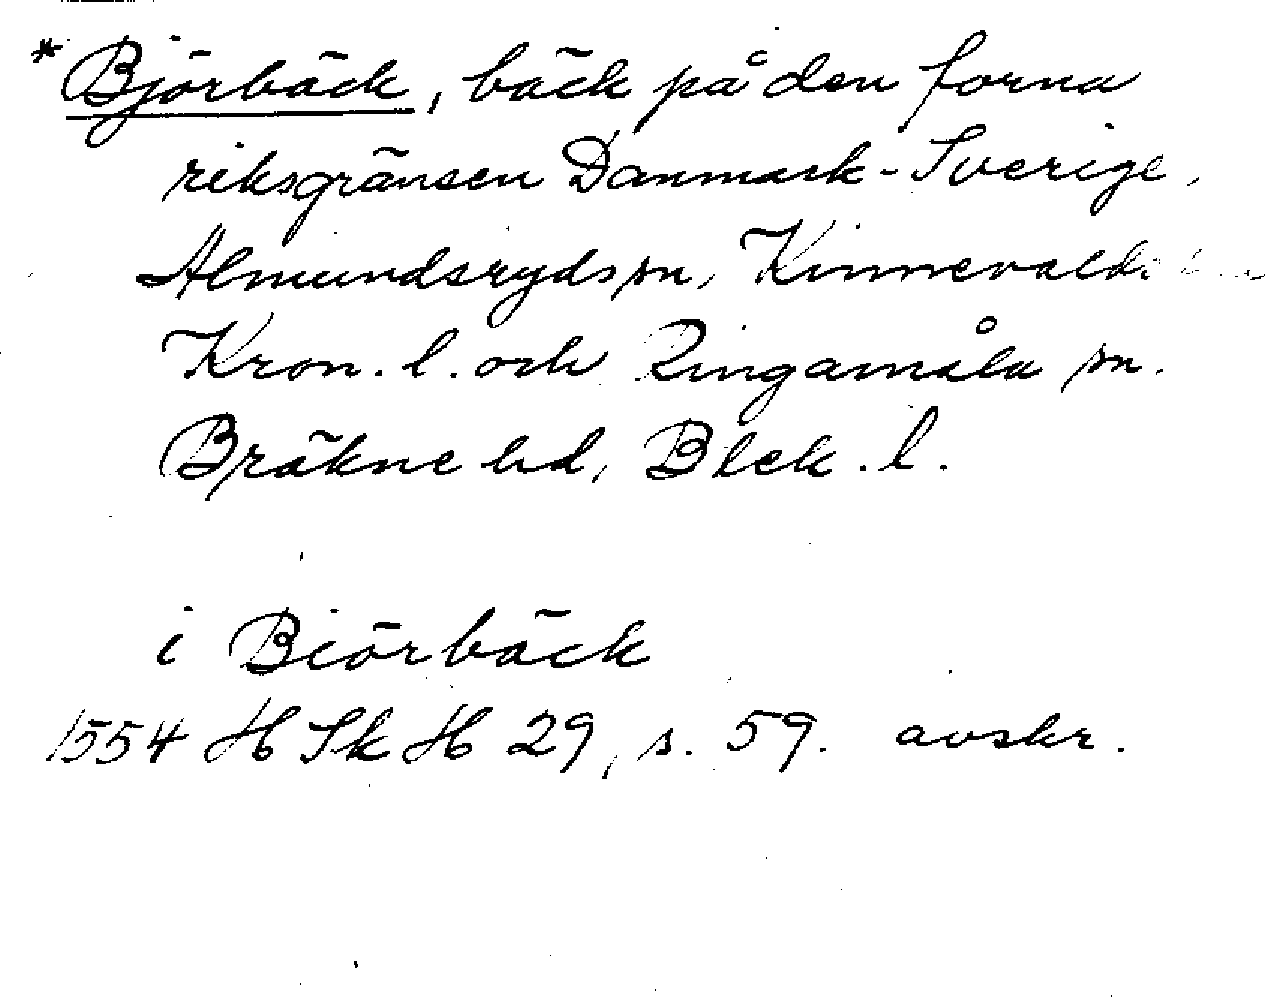 *Björbäck, bäck på den forna
riksgränsen Danmark-Sverige,
Almundsryds sn, Kinnevalds
Kron. l. och Ringamåla sn.
Bräkne hd, Blek. l.
i Biörbäck
1554 H Sk H 29, s. 59. avskr.